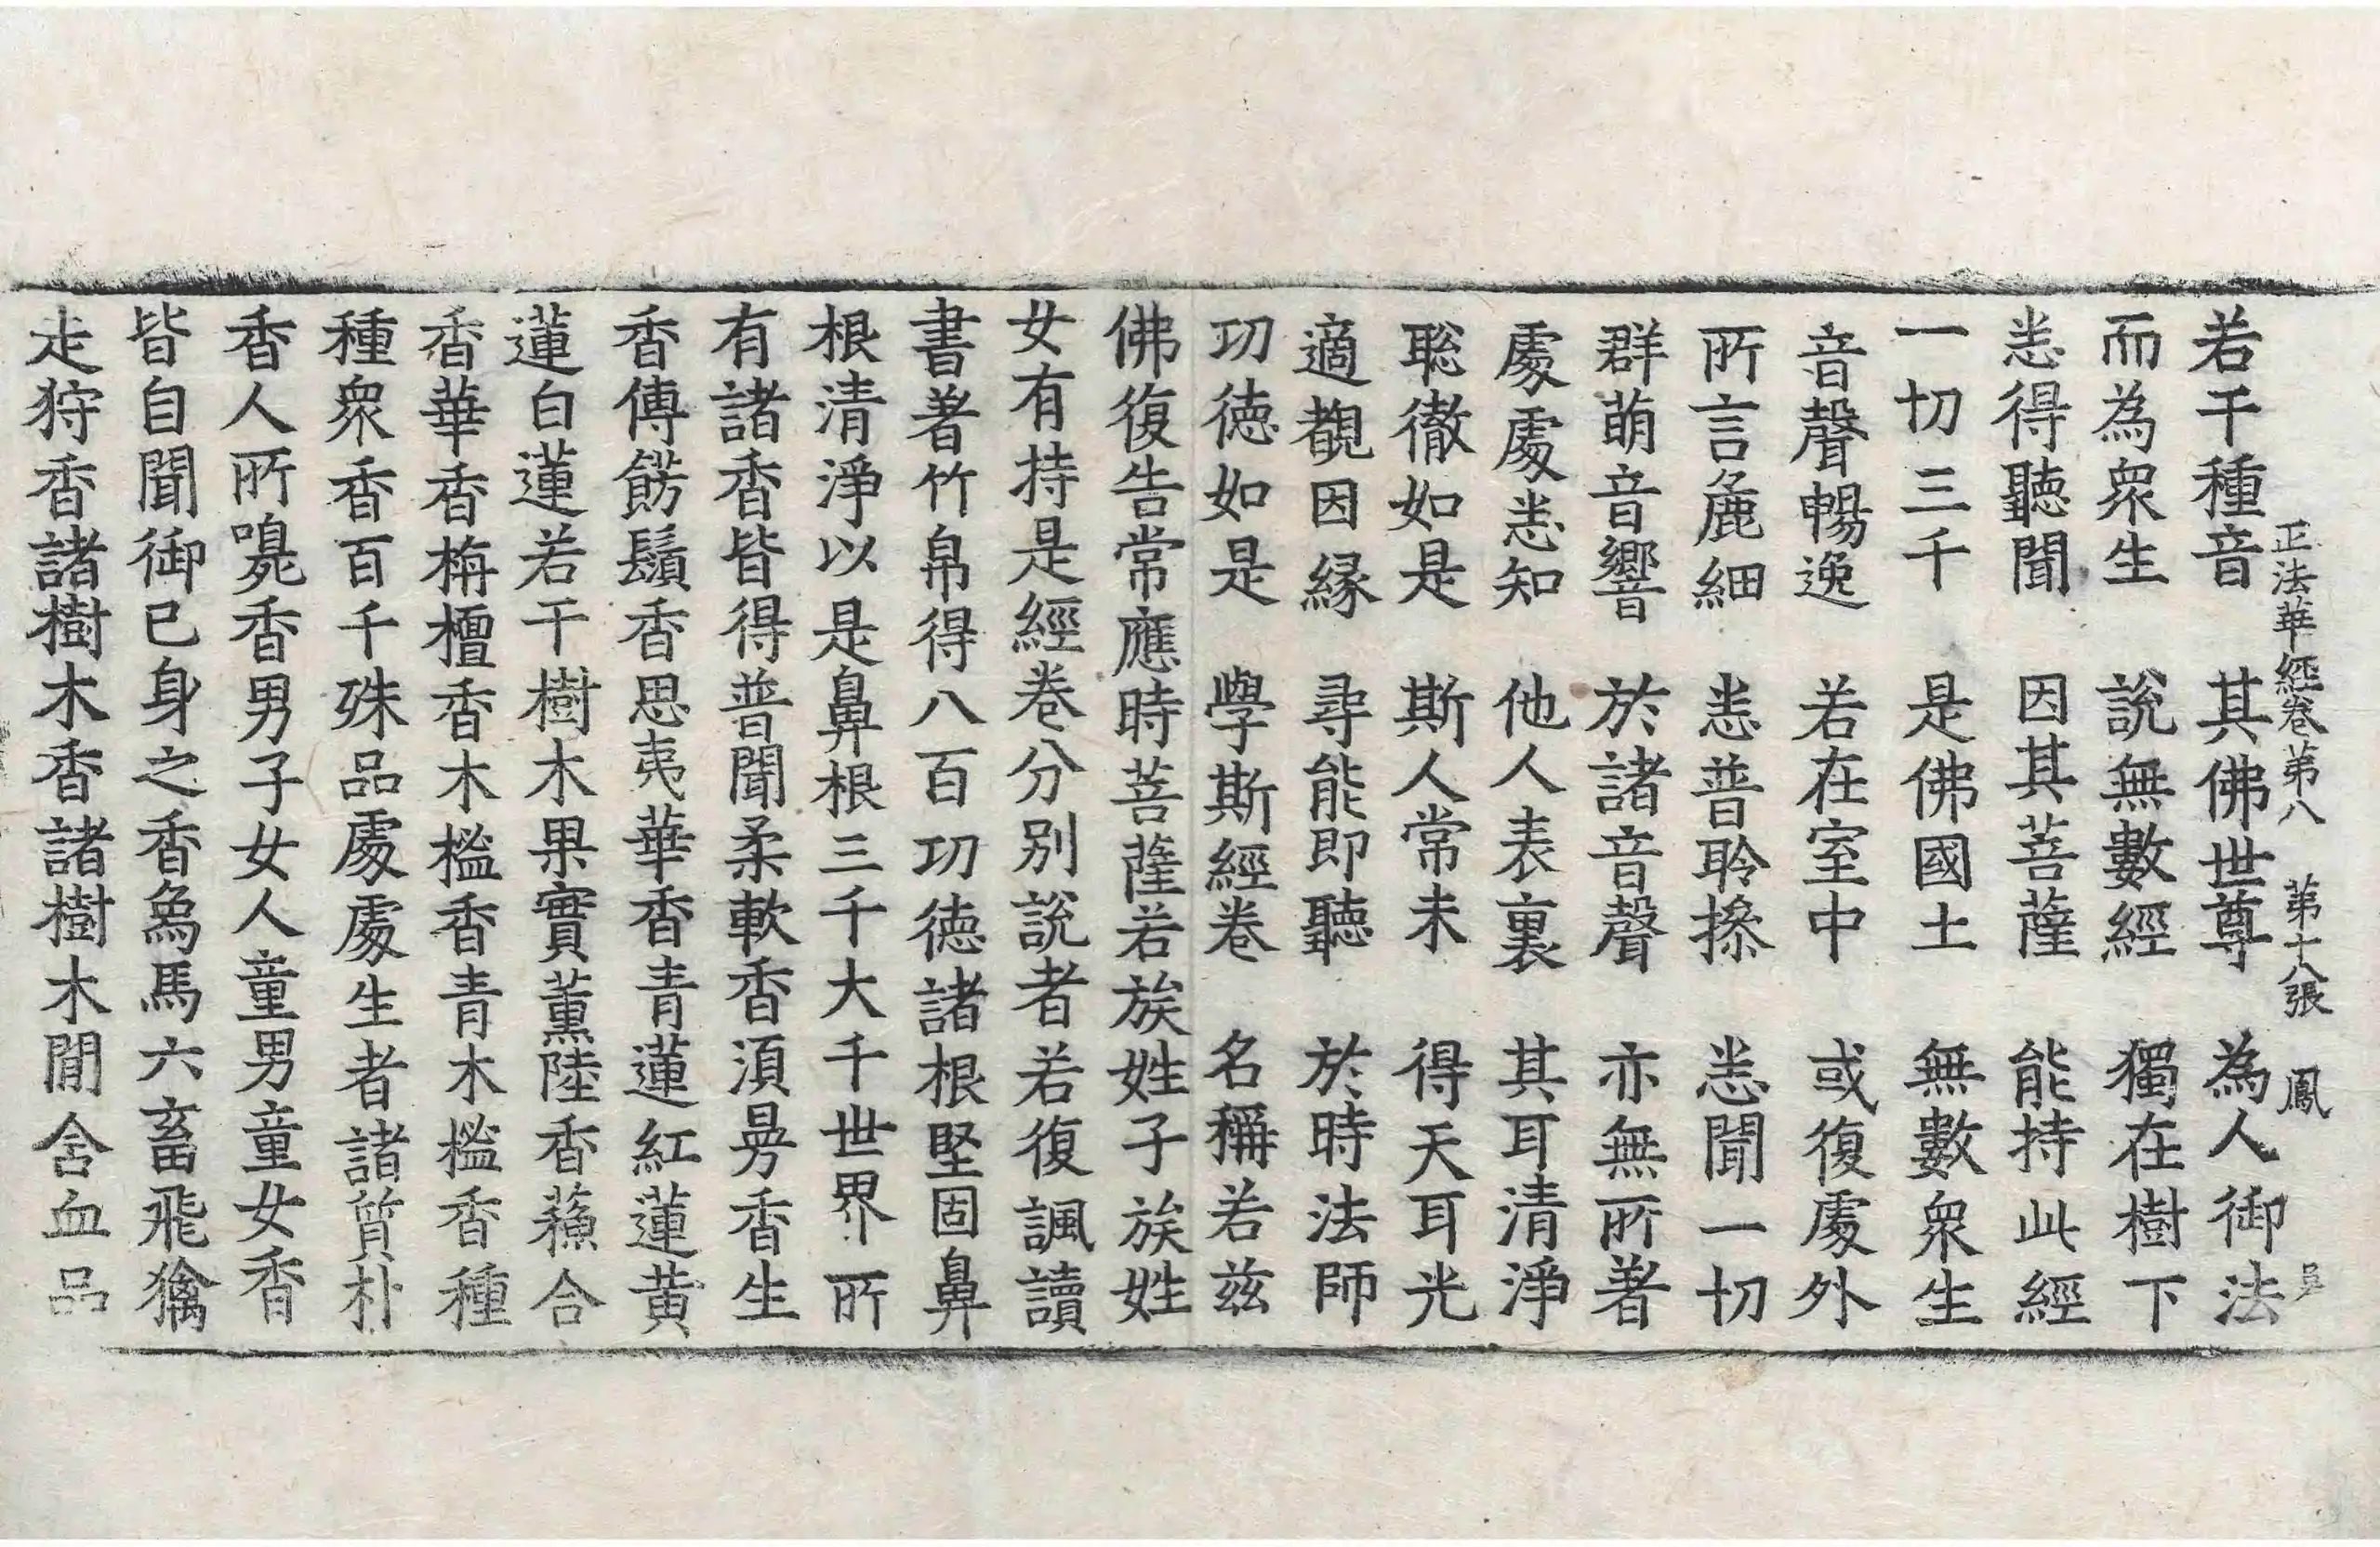 正法華經卷第八　第十八張　鳳　吳
若干種音　其佛世尊　為人御法
而為衆生　說無數經　獨在樹下
悉得聽聞　因其菩薩　能持此經
一切三千　是佛國土　無數衆生
音聲暢逸　若在室中　或復處外
所言麁細　悉普聆摻　悉聞一切
群萌音響　於諸音聲　亦無所著
處處悉知　他人表裏　其耳清淨
聡徹如是　斯人常未　得天耳光
適覩因緣　尋能即聽　於時法師
功徳如是　學斯經卷　名稱若茲
佛復告常應時菩薩若族姓子族姓
女有持是經卷分別說者若復諷讀
書著竹帛得八百功徳諸根堅固鼻
根清淨以是鼻根三千大千世界所
有諸香皆得普聞柔軟香須曼香生
香傅餝鬚香思夷華香青蓮紅蓮黄
蓮白蓮若干樹木果實薰陸香蘓合
香華香栴檀香木櫁香青木櫁香種
種衆香百千殊品處處生者諸質朴
香人所嗅香男子女人童男童女香
皆自聞御己身之香象馬六畜飛禽
走狩香諸樹木香諸樹木閒含血品